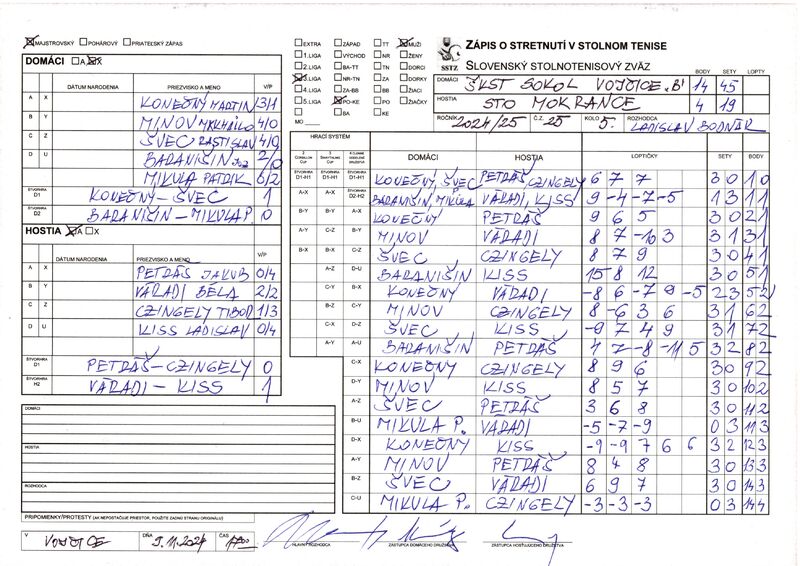 MAJSTROVSKÝ POHÁROVÝ PRIATEĽSKÝ ZÁPAS
DOMÁCI A X
DÁTUM NARODENIA PRIEZVISKO A MENO V/P
A X KONEČNY MARTIN 3/1
B Y MINOV MYKHAILO 4/0
C Z ŠVEC RASTISLAV 4/0
D U BARANIŠIN 2/0
MIKULA PATRIK 0/2
ŠTVORHRA D1 KONEČNY – ŠVEC 1
ŠTVORHRA D2 BARANIŠIN – MIKULA P. 0
HOSTIA A X
DÁTUM NARODENIA PRIEZVISKO A MENO V/P
A X PETRÁŠ JAKUB 0/4
B Y VÁRADI BÉLA 2/2
C Z CZINGELY TIBOR 1/3
D U KISS LADISLAV 0/4
ŠTVORHRA D1 PETRÁŠ – CZINGELY 0
ŠTVORHRA H2 VÁRADI – KISS 1
DOMÁCI
HOSTIA
ROZHODCA
PRIPOMIENKY/PROTESTY (AK NEPOSTAČUJE PRIESTOR, POUŽITE ZADNÚ STRANU ORIGINÁLU)
V VOJČICE DŇA 9.11.2024 ČAS
HLAVNÝ ROZHODCA ZÁSTUPCA DOMÁCEHO DRUŽSTVA ZÁSTUPCA HOSŤUJÚCEHO DRUŽSTVA
EXTRA ZÁPAD TT MUŽI
1.LIGA VÝCHOD NR ŽENY
2.LIGA BA-TT TN DORCI
3.LIGA NR-TN ZA DORKY
4.LIGA ZA-BB BB ŽIACI
5.LIGA PO-KE PO ŽIAČKY
MO BA KE
SSTZ
ZÁPIS O STRETNUTÍ V STOLNOM TENISE
SLOVENSKÝ STOLNOTENISOVÝ ZVÄZ
BODY SETY LOPTY
DOMÁCI ŠKST SOKOL VOJČICE „B" 14 45
HOSTIA STO MOKRANCE 4 19
ROČNÍK 2024/25 Č.Z. 25 KOLO 5. ROZHODCA LADISLAV BODNÁR
HRACÍ SYSTÉM
DOMÁCI HOSTIA LOPTIČKY SETY BODY
ŠTVORHRA D1-H1 KONEČNY, ŠVEC PETRÁŠ, CZINGELY 6 7 7 3 0 1 0
A-X ŠTVORHRA D2-H2 BARANIŠIN, MIKULA VÁRADI, KISS 9 -4 -7 -5 1 3 1 1
B-Y B-Y A-X KONEČNY PETRÁŠ 9 6 5 3 0 2 1
A-Y C-Z B-Y MINOV VÁRADI 8 7 -10 3 3 1 3 1
B-X B-X C-Z ŠVEC CZINGELY 8 7 9 3 0 4 1
A-Z D-U BARANIŠIN KISS 15 8 12 3 0 5 1
C-Y B-X KONEČNY VÁRADI -8 6 -7 9 -5 2 3 5 2
B-Z C-Y MINOV CZINGELY 8 -6 3 6 3 1 6 2
C-X D-Z ŠVEC KISS -9 7 4 9 3 1 7 2
A-Y A-U BARANIŠIN PETRÁŠ 4 7 -8 -11 5 3 2 8 2
C-X KONEČNY CZINGELY 8 9 6 3 0 9 2
D-Y MINOV KISS 8 5 7 3 0 10 2
A-Z ŠVEC PETRÁŠ 3 6 8 3 0 11 2
B-U MIKULA P. VÁRADI -5 -7 -9 0 3 11 3
D-X KONEČNY KISS -9 -9 7 6 6 3 2 12 3
A-Y MINOV PETRÁŠ 8 4 8 3 0 13 3
B-Z ŠVEC VÁRADI 6 9 7 3 0 14 3
C-U MIKULA P. CZINGELY -3 -3 -3 0 3 14 4